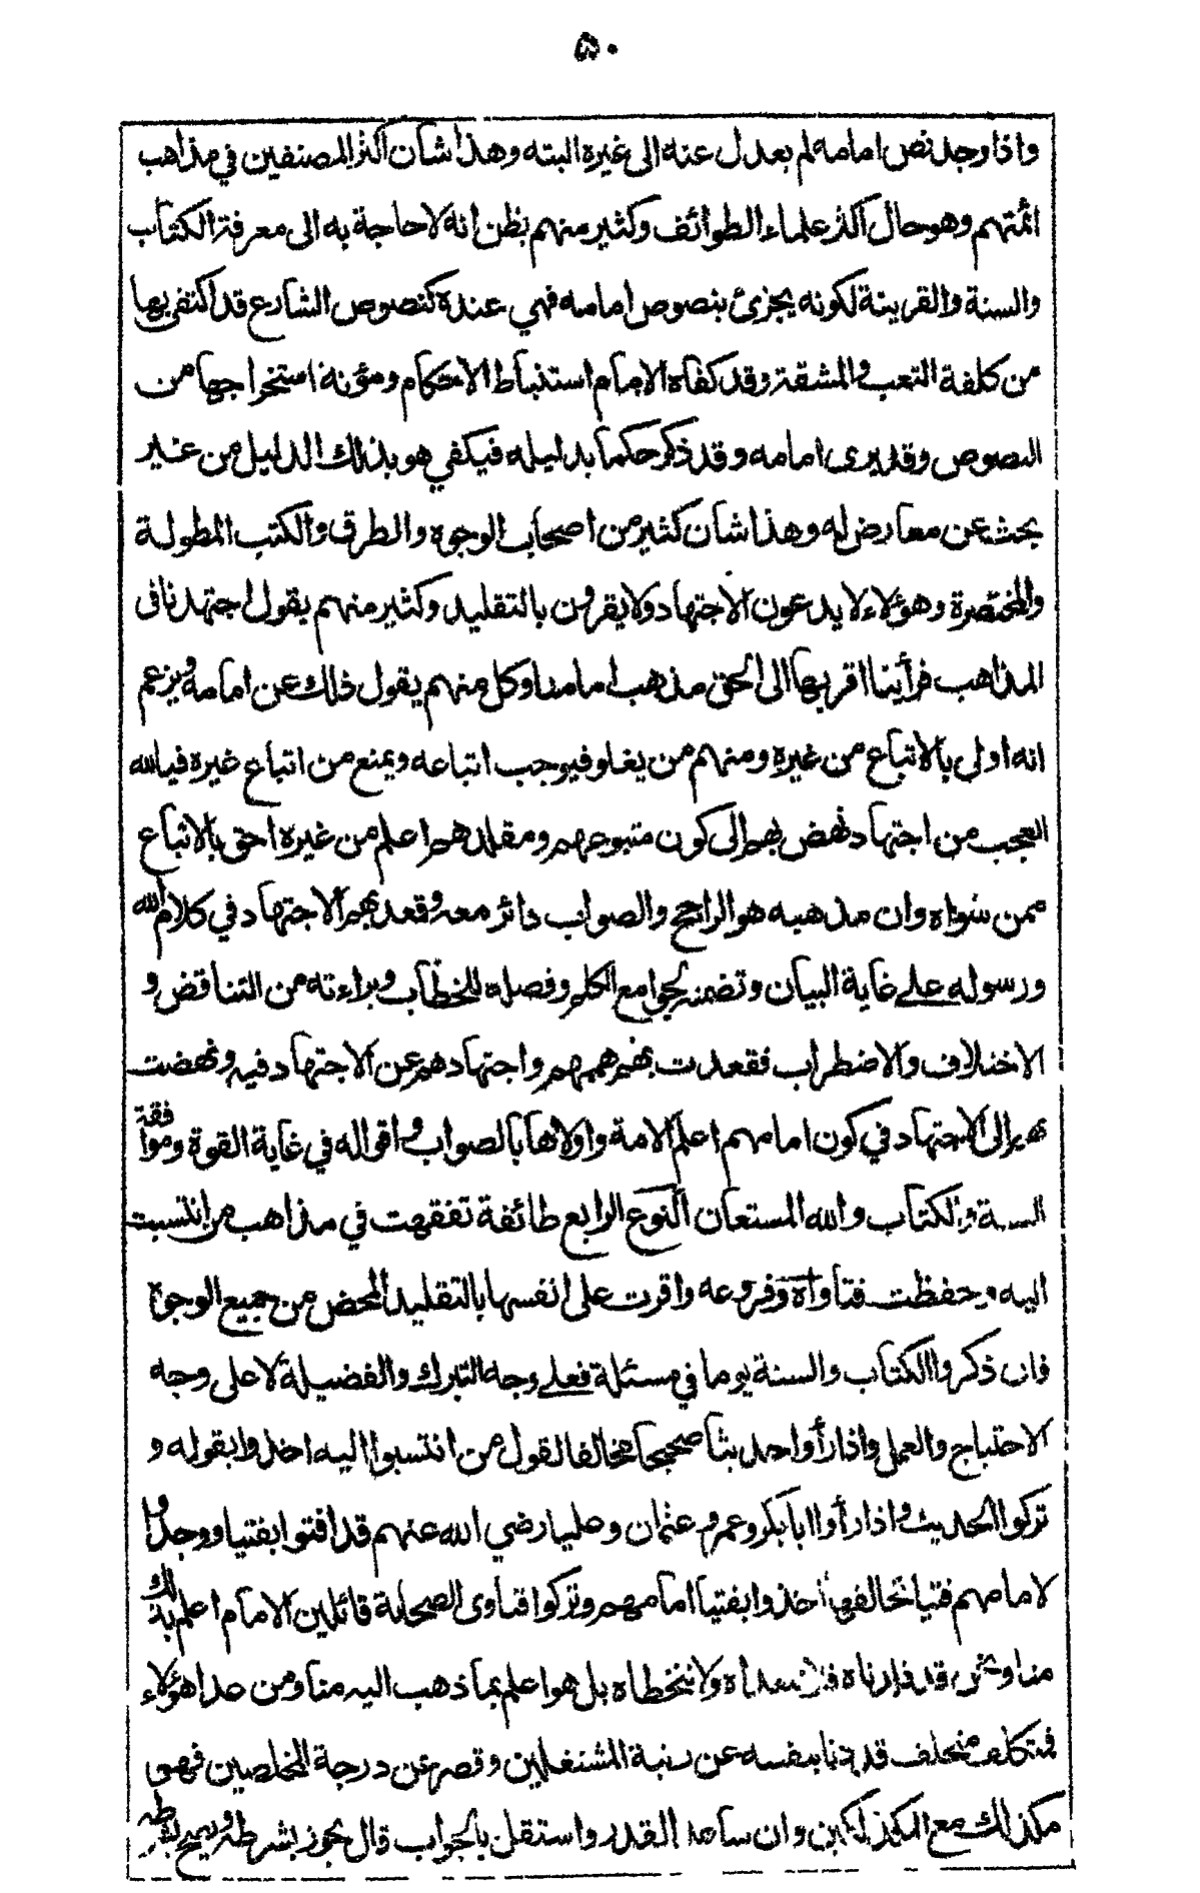 ۵۰
واذا وجد نص امامه لم يعدل عنه الى غيره البته وهذا شان اكثر المصنفين في مذاهب
ائمتهم وهو حال اكثر علماء الطوائف وكثير منهم يظن انه لا حاجة به الى معرفة الكتاب
والسنة والقرينة لكونه يجزئ بنصوص امامه فهي عنده كنصوص الشارع قد اكتفى بها
من كلفة التعب والمشقة وقد كفاه الامام استنباط الاحكام ومؤنة استخراجها من
النصوص وقد يرى امامه وقد ذكر حكما بدليله فيكفي هو بذلك الدليل من غير
بحث عن معارض له وهذا شان كثير من اصحاب الوجوه والطرق والكتب المطولة
والمختصرة وهؤلاء لا يدعون الاجتهاد ولا يقرون بالتقليد وكثير منهم يقول اجتهدنا في
المذاهب فرأينا اقربها الى الحق مذهب امامنا وكل منهم يقول ذلك عن امامه ويزعم
انه اولى بالاتباع من غيره ومنهم من يغلو فيوجب اتباعه ويمنع من اتباع غيره فيالله
العجب من اجتهاد نهض بهم الى كون متبوعهم ومقلدهم اعلم من غيره احق بالاتباع
ممن سواه وان مذهبه هو الراجح والصواب دائر معه وقعد بهم الاجتهاد في كلام الله
ورسوله على غاية البيان وتضمنه لجوامع الكلم وفصله للخطاب وبراءته من التناقض و
الاختلاف والاضطراب فقعدت بهم هممهم واجتهادهم عن الاجتهاد فيه ونهضت
بهم الى الاجتهاد في كون امامهم اعلم الامة واولاها بالصواب واقواله في غاية القوة وموافقة
السنة والكتاب والله المستعان النوع الرابع طائفة تفقهت في مذاهب من انتسبت
اليه وحفظت فتاواه وفروعه واقرت على انفسها بالتقليد المحض من جميع الوجوه
فان ذكروا الكتاب والسنة يوما في مسئلة فعلى وجه التبرك والفضيلة لا على وجه
الاحتياج والعمل واذا رأوا حديثا صحيحا مخالفا لقول من انتسبوا اليه اخذوا بقوله و
تركوا الحديث واذا رأوا ابا بكر وعمر وعثمان وعليا رضي الله عنهم قد افتوا بفتيا ووجدوا
لامامهم فتيا تخالفها اخذوا بفتيا امامهم وتركوا فتاوى الصحابة قائلين الامام اعلم بذلك
منا ونحن قد قلدناه فلا نتعداه ولا نتخطاه بل هو اعلم بما ذهب اليه منا ومن عدا هؤلاء
فمتكلف متخلف قد دنا بنفسه عن رتبة المشتغلين وقصر عن درجة المحصلين فهو
مكذلك مع المكذلكين وان ساعد القدر واستقل بالجواب قال يجوز بشرطه ويصح بشرطه